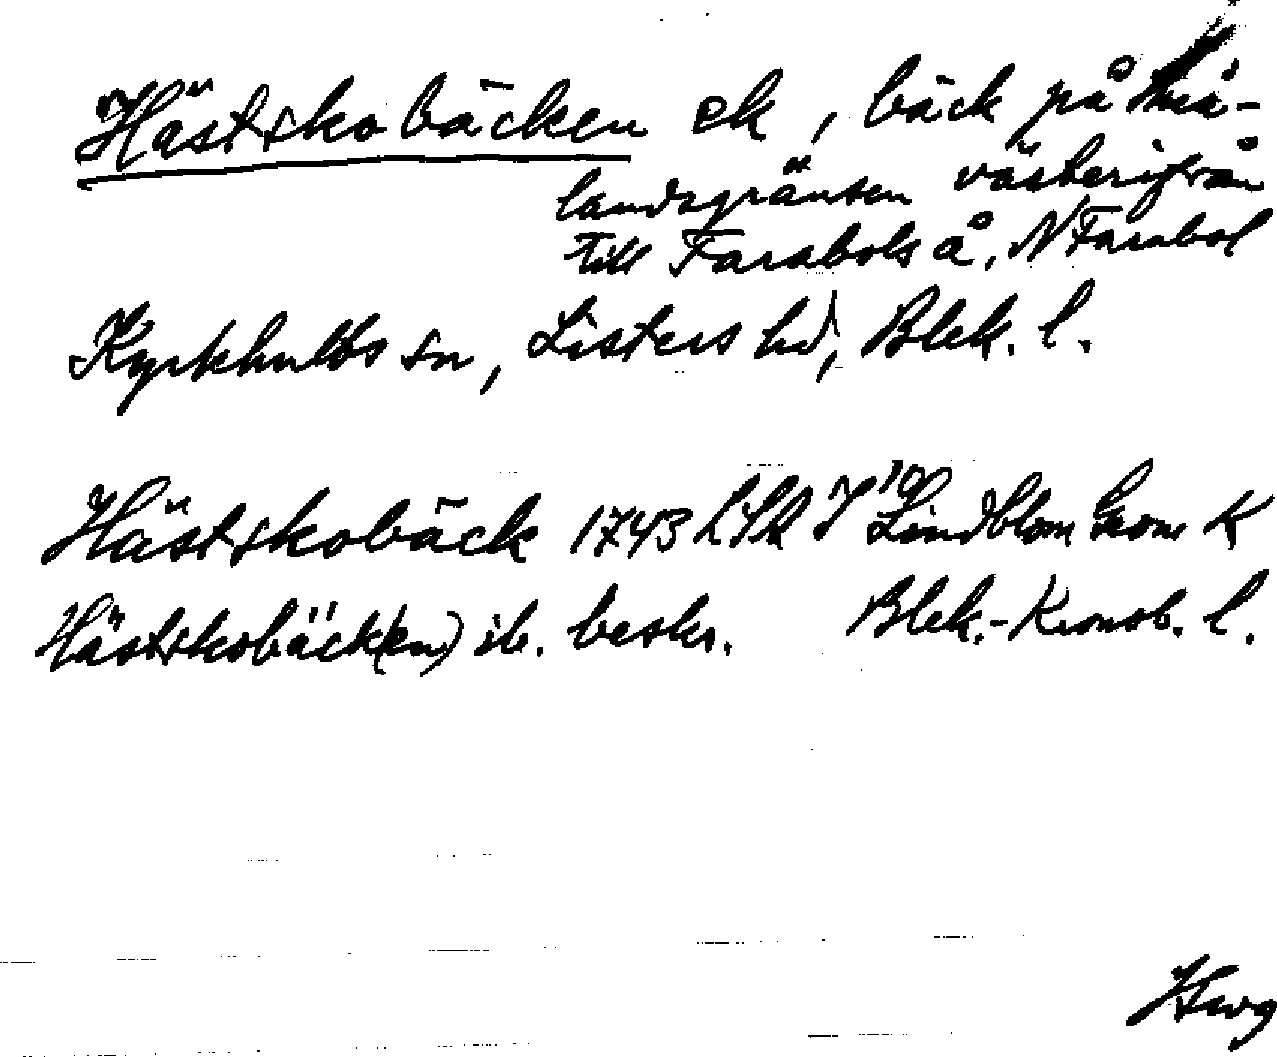 Hästskobäcken ek, bäck på Små-
landsgränsen västerifrån
till Farabols å, N Farabol
Kyrkhults sn, Listers hd, Blek. l.
Hästskobäck 1743 LSk Lindblom Geom K
Hästskobäck(en) ib. beskr. Blek.-Kronob. l.